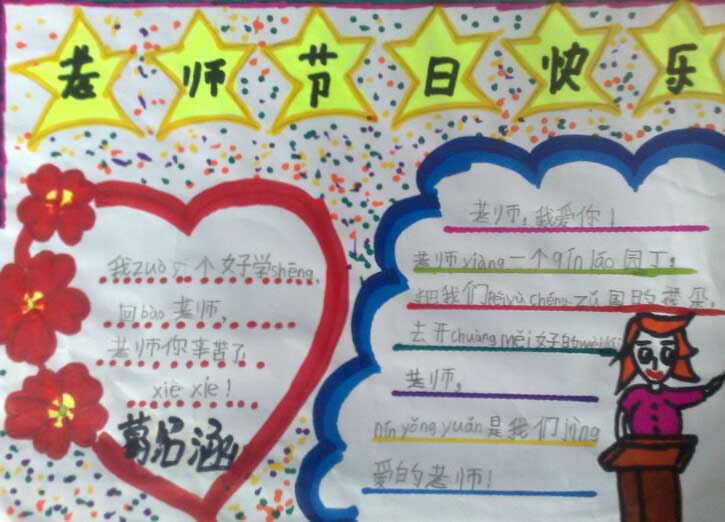 老师节日快乐
我zuò一个好学shēng,
回bào老师,
老师你辛苦了!
xiè xie!
葛佲涵
老师,我爱你!
老师xiàng一个qín láo园丁,
把我们péi yù chéng zǔ国的花朵,
去开chuàng měi好的wèi lái
老师,
nín yǒng yuǎn是我们jìng
爱的老师!